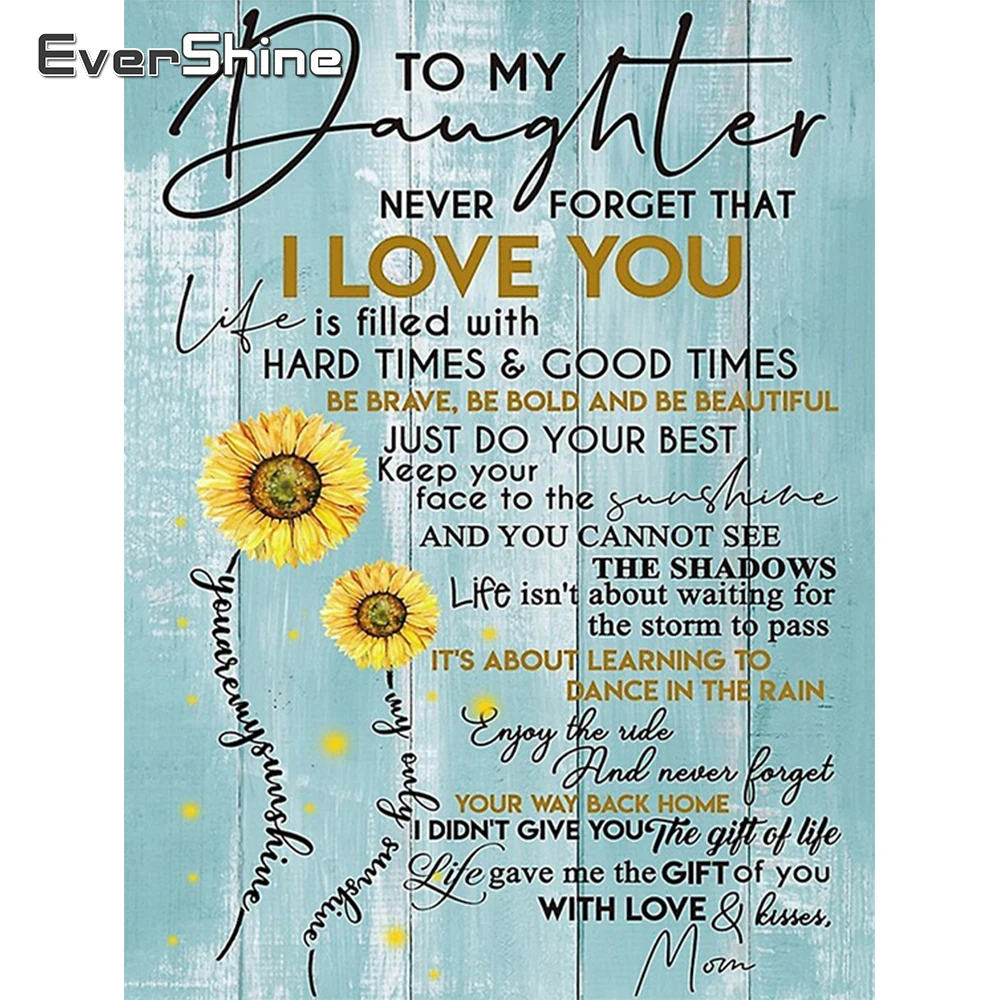 EverShine
TO MY
Daughter
NEVER FORGET THAT
I LOVE YOU
Life is filled with
HARD TIMES & GOOD TIMES
BE BRAVE, BE BOLD AND BE BEAUTIFUL
JUST DO YOUR BEST
Keep your
face to the sunshine
AND YOU CANNOT SEE
THE SHADOWS
Life isn't about waiting for
the storm to pass
IT'S ABOUT LEARNING TO
DANCE IN THE RAIN
Enjoy the ride
And never forget
YOUR WAY BACK HOME
I DIDN'T GIVE YOU The gift of life
Life gave me the GIFT of you
WITH LOVE & kisses,
Mom
youaremysunshine
my only sunshine